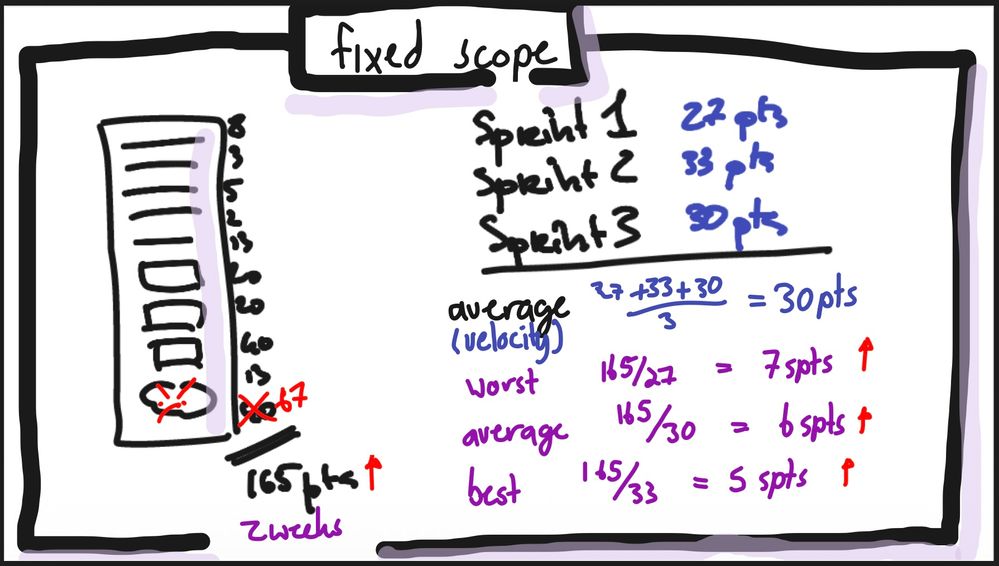 fixed scope
8
3
5
2
13
20
20
40
13
67
165 pts
2 weeks
Sprint 1 27 pts
Sprint 2 33 pts
Sprint 3 30 pts
average 27 + 33 + 30 / 3 = 30 pts
(velocity)
worst 165/27 = 7 spts
average 165/30 = 6 spts
best 165/33 = 5 spts